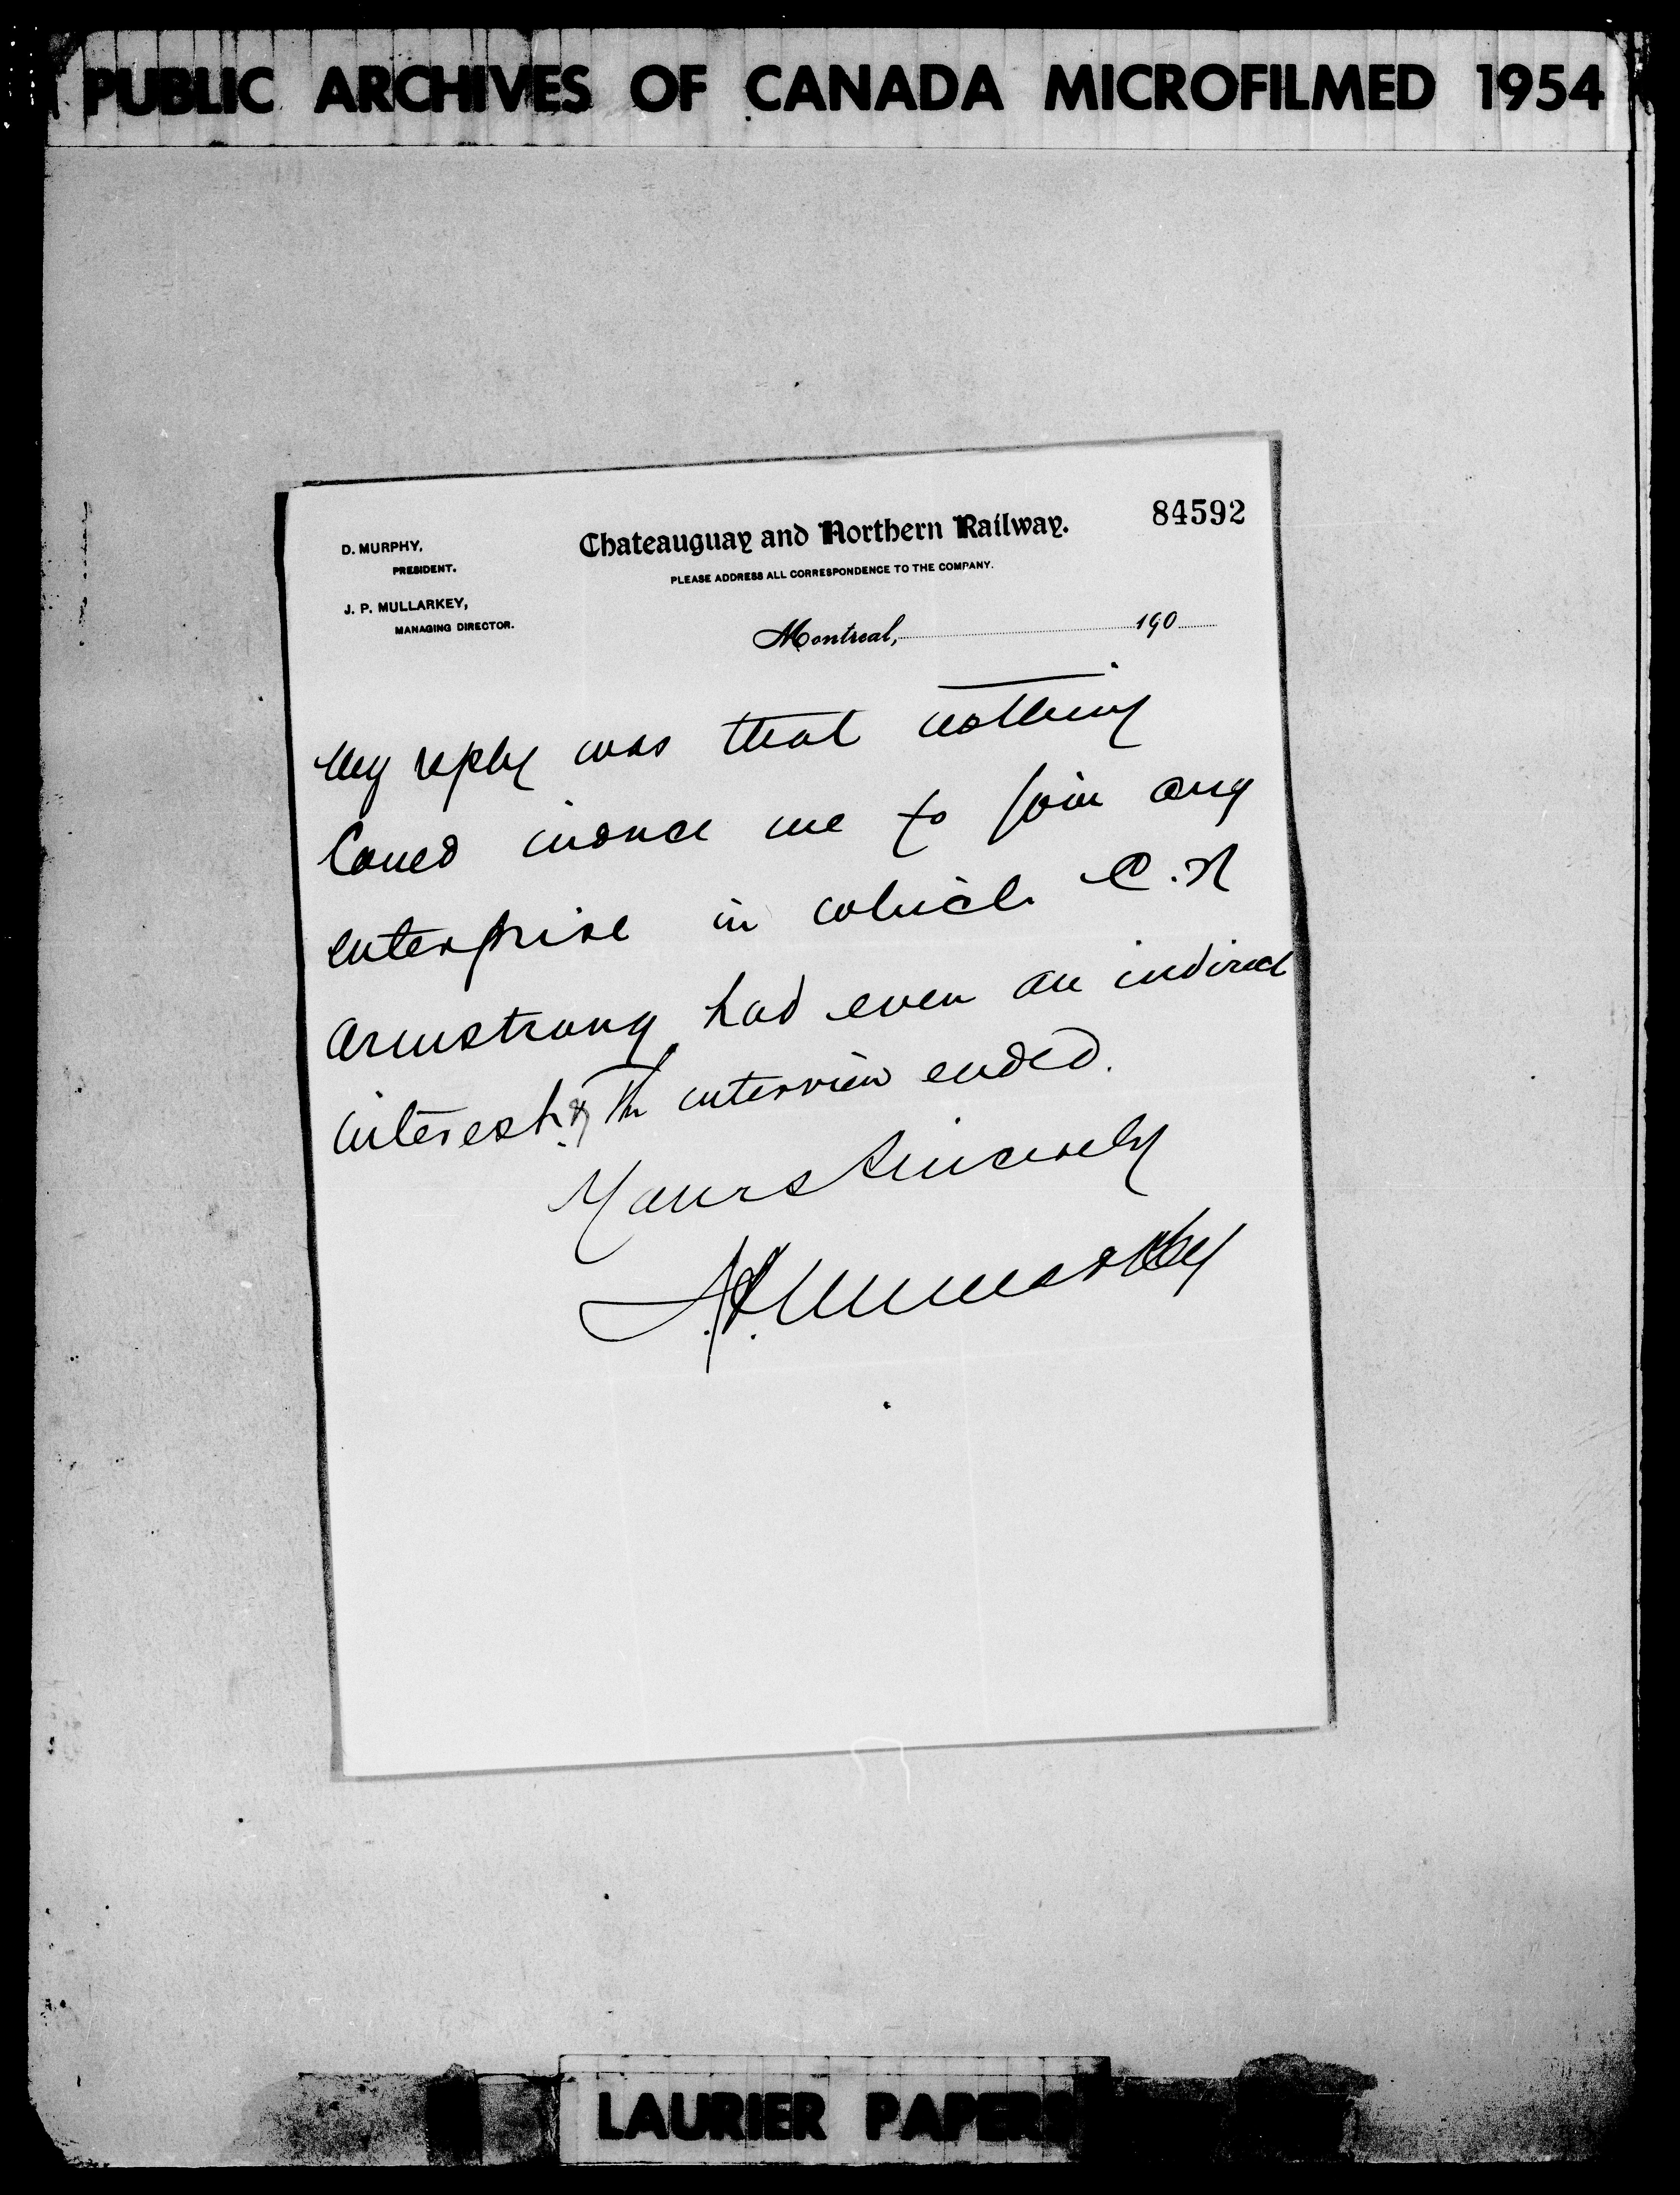 PUBLIC ARCHIVES OF CANADA MICROFILMED 1954
84592
D. MURPHY,
PRESIDENT.
J. P. MULLARKEY,
MANAGING DIRECTOR.
Chateauguay and Northern Railway.
PLEASE ADDRESS ALL CORRESPONDENCE TO THE COMPANY.
Montreal, 190
My reply was that nothing
Coued induce me to join any
enterprise in which C.N
Armstrong had even an indirect
interest & The interview ended.
Yours Sincerely
J.P. Mullarkey
LAURIER PAPERS